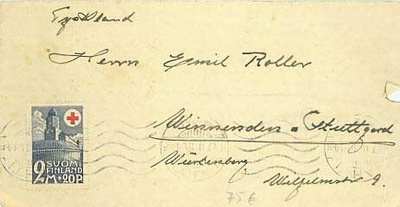 Tyskland
Herrn Emil Roller
Winnenden - Stuttgard
Würtemberg
Wilhelmstr 9.
SUOMI
FINLAND
2 M.+20 P.
75€